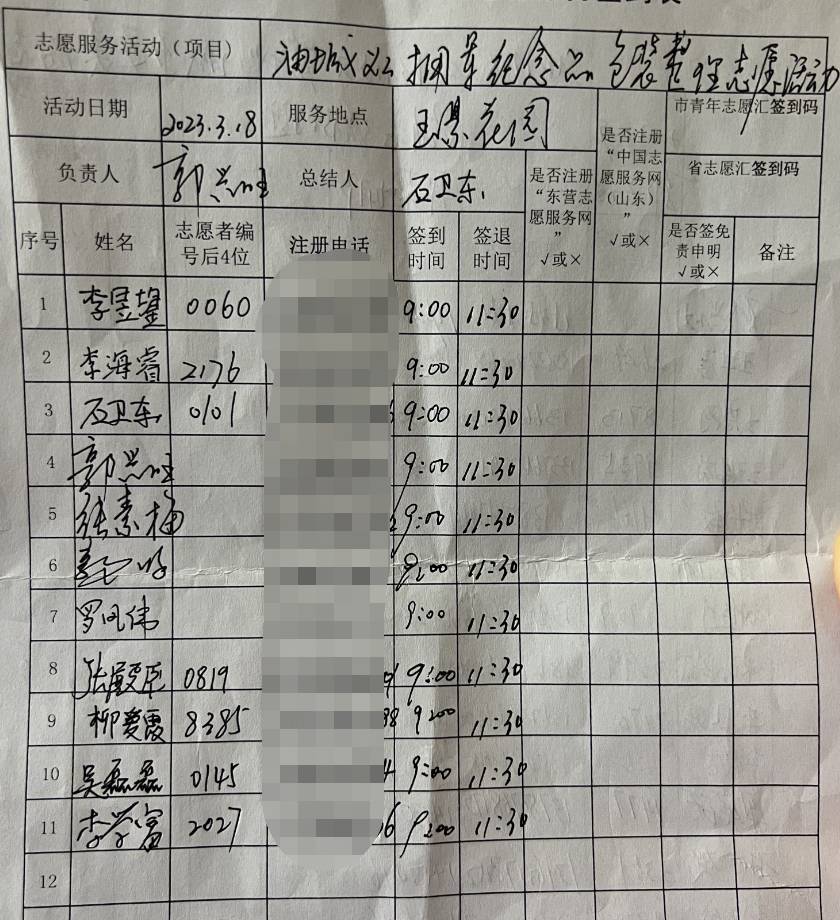 志愿服务活动（项目） 油城公 捐 纪念品 包装整理志愿活动
活动日期 2023.3.18 服务地点 王 花园 是否注册“中国志愿服务网（山东）”√或× 市青年志愿汇签到码
负责人 郭 总结人 石卫东 是否注册“东营志愿服务网”√或× 省志愿汇签到码
序号 姓名 志愿者编号后4位 注册电话 签到时间 签退时间 是否签免责申明√或× 备注
1 李昱 0060 9:00 11:30
2 李海睿 2176 9:00 11:30
3 石卫东 0101 9:00 11:30
4 郭 9:00 11:30
5 张素梅 9:00 11:30
6 9:00 11:30
7 罗凤伟 9:00 11:30
8 张殿臣 0819 9:00 11:30
9 柳爱霞 8385 98 9:00 11:30
10 吴磊磊 0145 4 9:00 11:30
11 李学富 2027 6 9:00 11:30
12